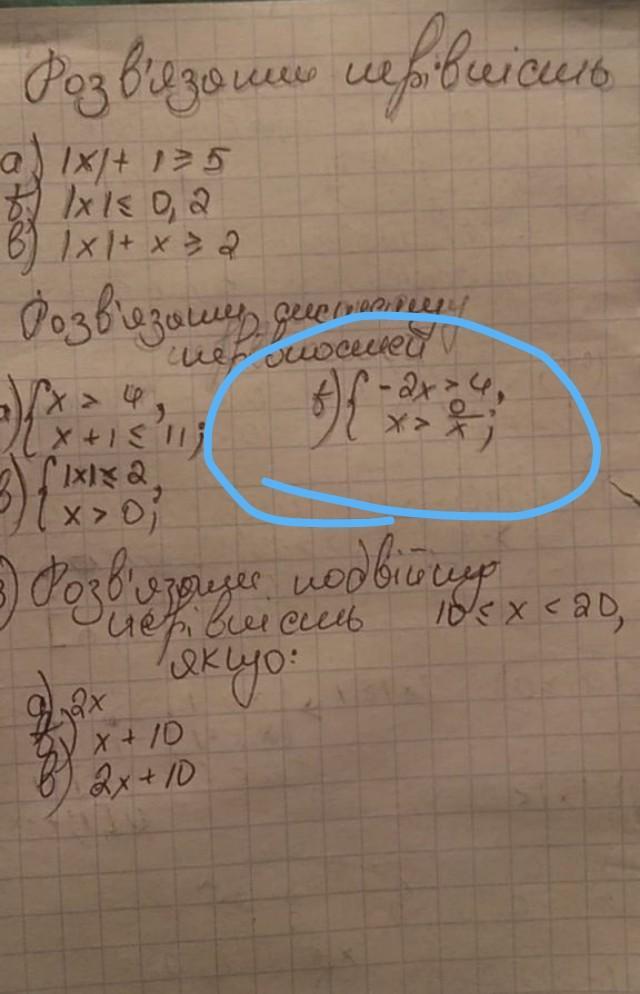 Розв'язати нерівність
а) |x| + 1 ≥ 5
б) |x| ≤ 0,2
в) |x| + x ≥ 2
Розв'язати систему
нерівностей
а) { x > 4,
x + 1 ≤ 11;
б) { -2x > 4,
x > 0/x;
в) { |x| ≤ 2,
x > 0;
3) Розв'язати подвійну
нерівність 10 ≤ x < 20,
якщо:
а) 2x
б) x + 10
в) 2x + 10